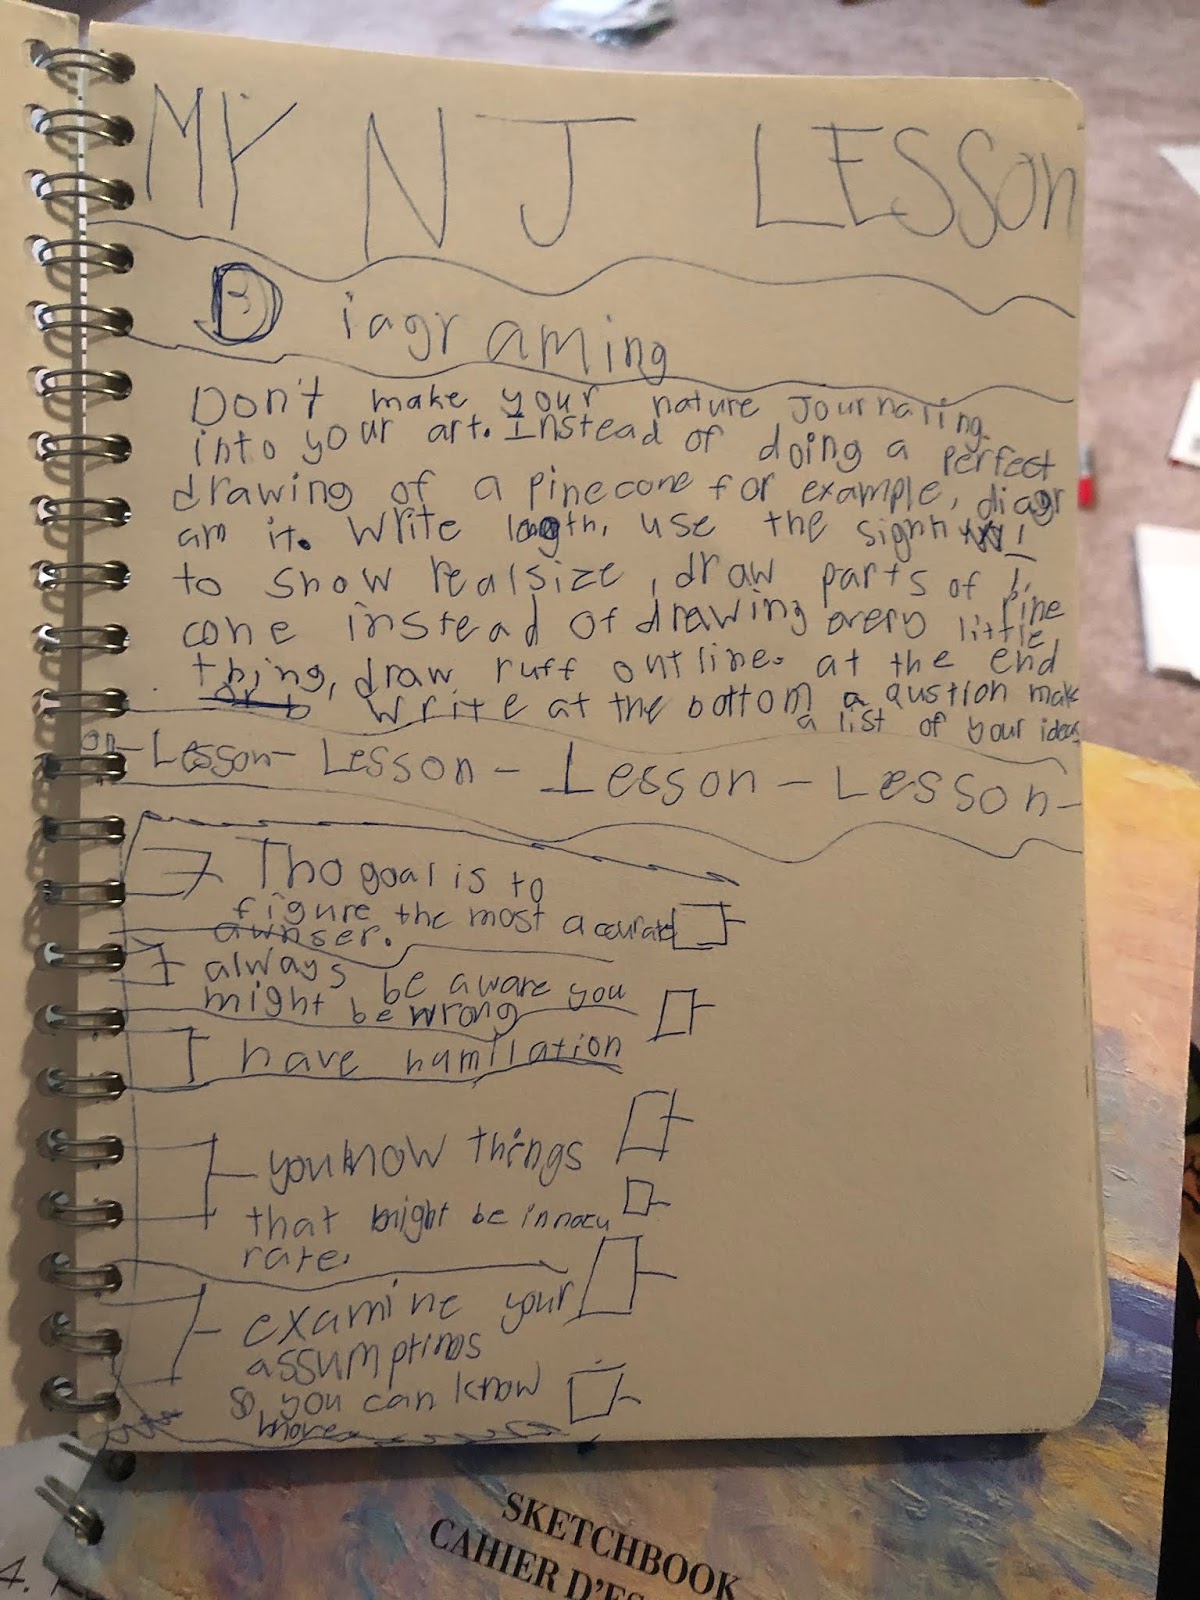 MY NJ LESSON
Diagraming
Don't make your nature Journaling
into your art. Instead of doing a perfect
drawing of a pinecone for example, diagr
am it. Write length, use the signn
to show realsize, draw parts of pine
cone instead of drawing every little
thing, draw ruff outline. at the end
write at the bottom a qustion make
a list of your ideas
on-Lesson- Lesson - Lesson - Lesson-
Tho goal is to
figure the most accurate
awnser.
always be aware you
might be wrong
have humilation
you know things
that might be innacu
rate.
examine your
assumptinos
so you can know
more
SKETCHBOOK
CAHIER D'ES
4.